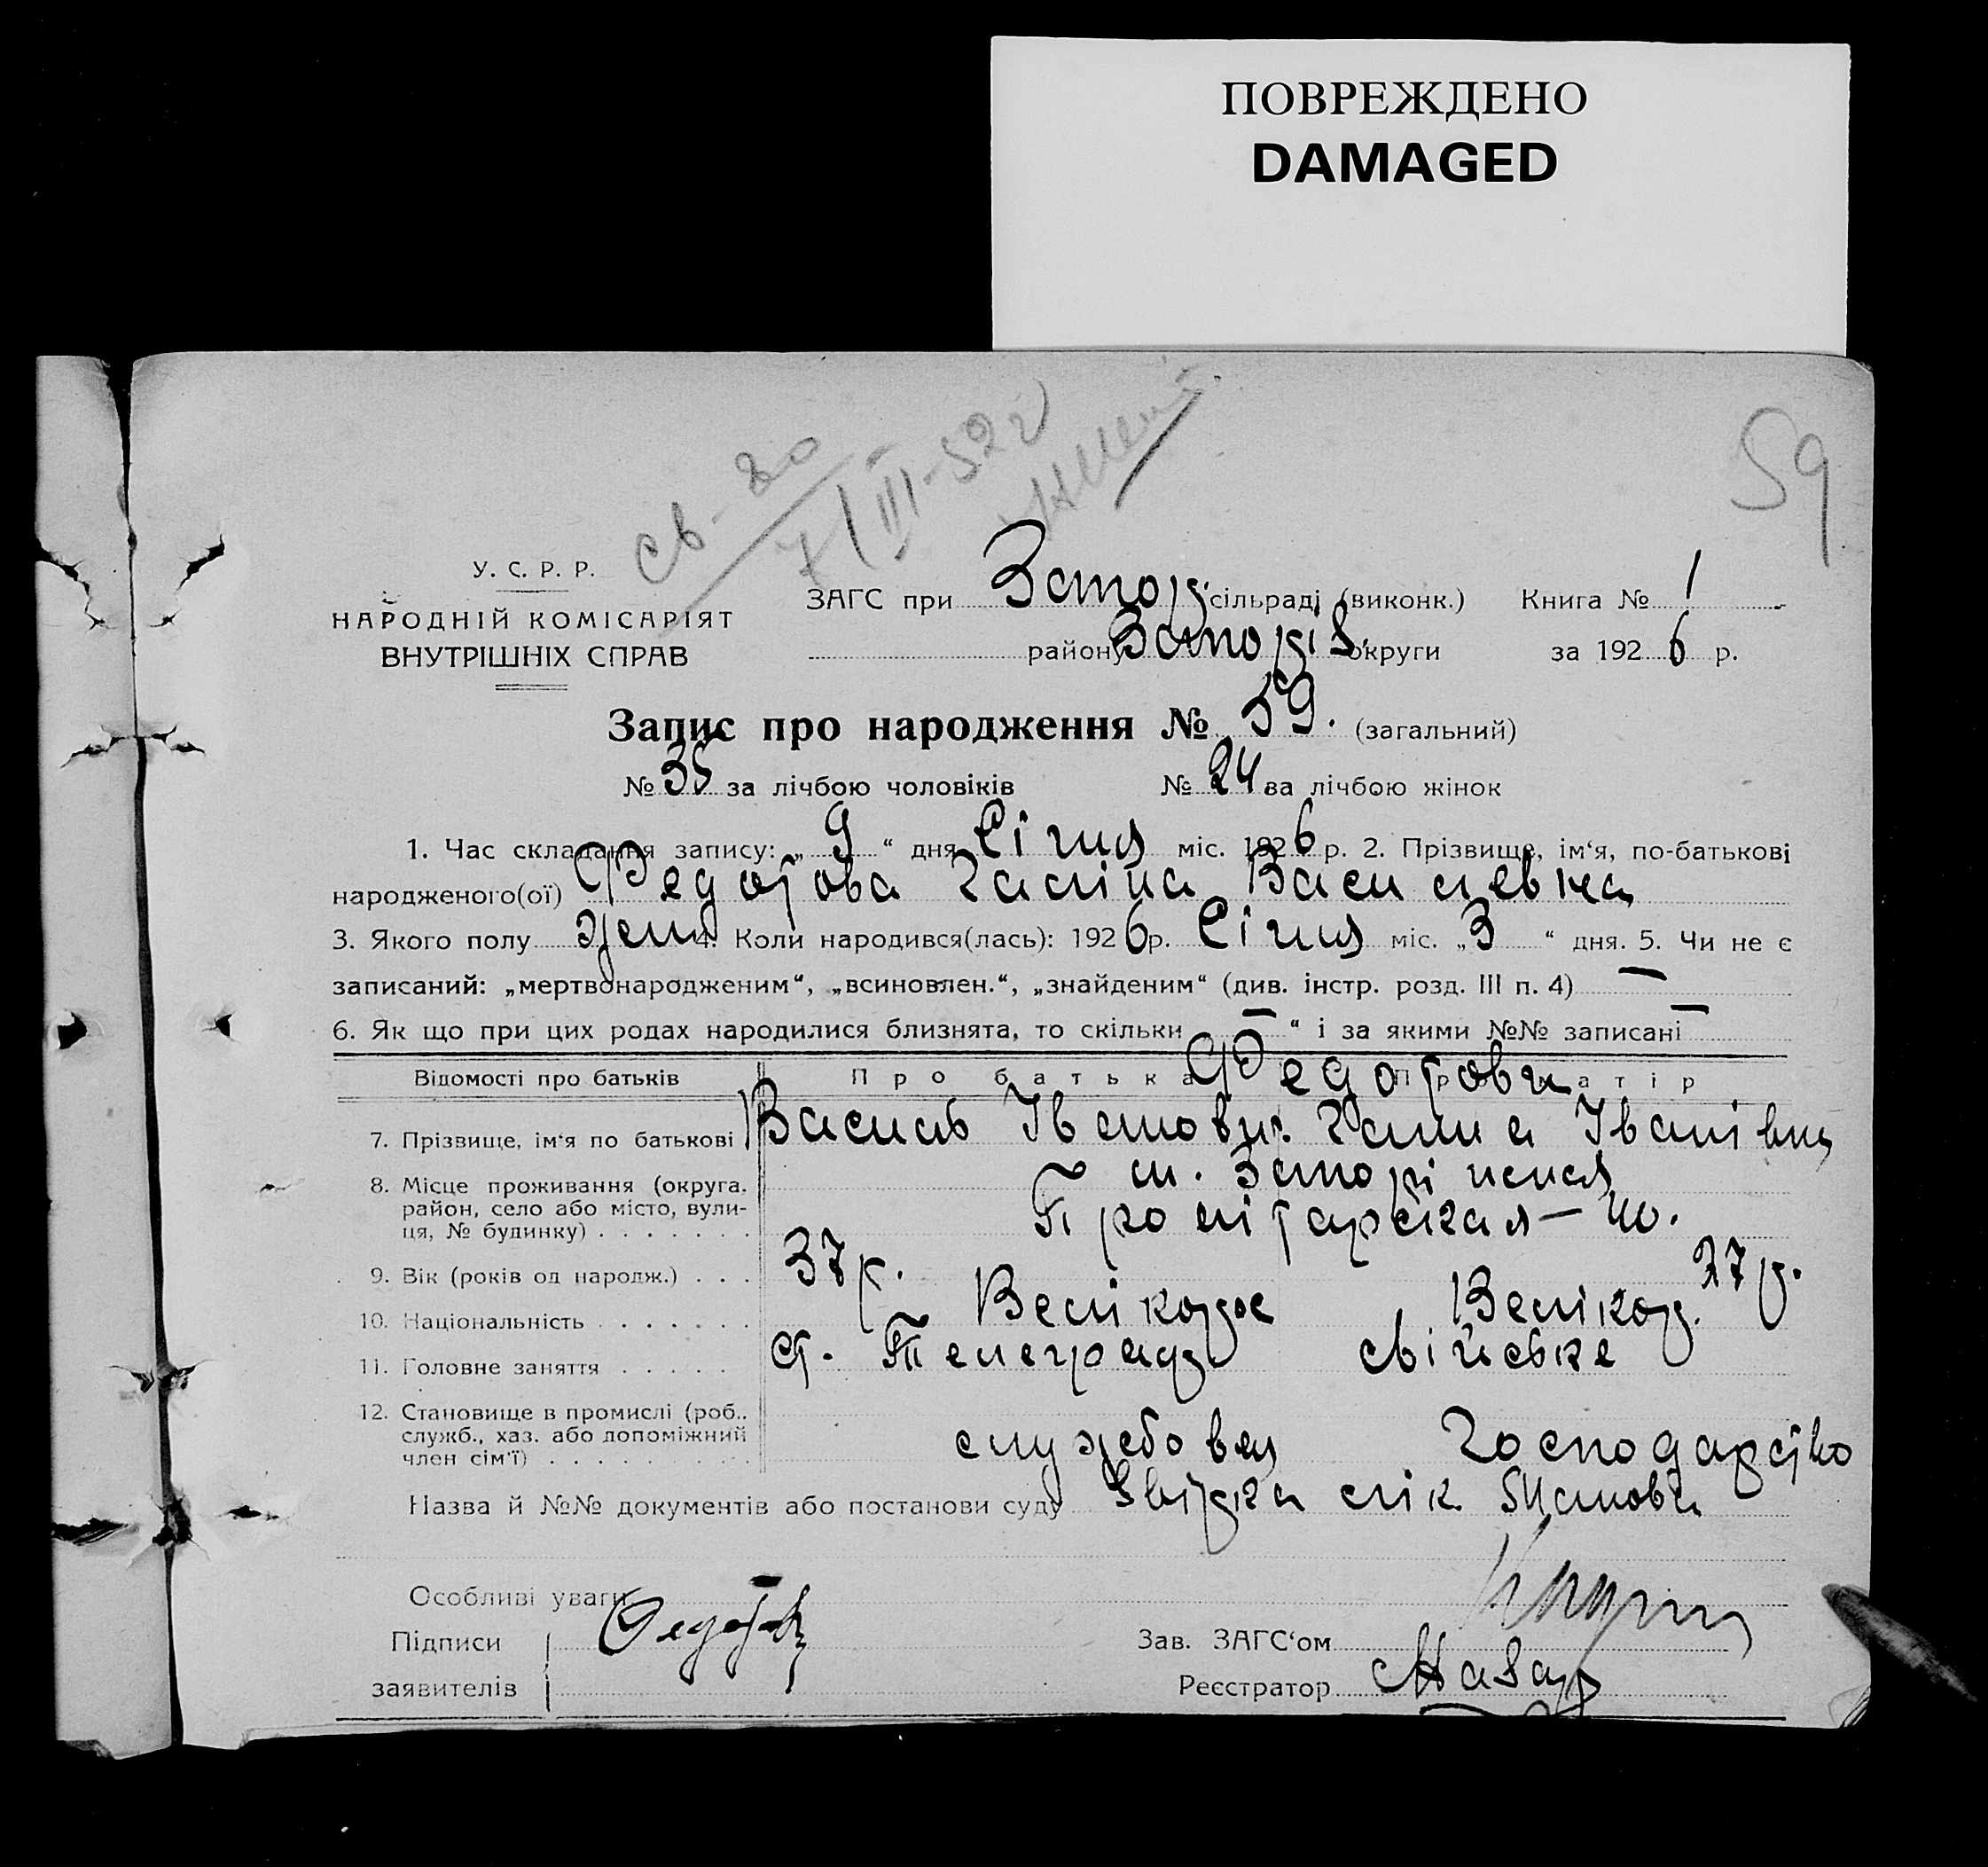 ПОВРЕЖДЕНО
DAMAGED
59
св-20
7/III-52 г
У. С. Р. Р.
НАРОДНІЙ КОМІСАРІЯТ
ВНУТРІШНІХ СПРАВ
ЗАГС при Запор. сільраді (виконк.) Книга № 1
району Запоріз. округи за 1926 р.
Запис про народження № 59. (загальний)
№ 35 за лічбою чоловіків № 24 за лічбою жінок
1. Час складання запису: „ 9 “ дня Січня міс. 1926 р. 2. Прізвище, ім‘я, по-батькові
народженого(ої) Федотова Галіна Василевна
3. Якого полу жен 4. Коли народився(лась): 1926 р. Січня міс. „ 3 “ дня. 5. Чи не є
записаний: „мертвонародженим“, „всиновлен.“, „знайденим“ (див. інстр. розд. III п. 4) —
6. Як що при цих родах народилися близнята, то скільки — “ і за якими №№ записані —
Відомості про батьків Про батька Про матір
Федотови
7. Прізвище, ім‘я по батькові Василь Іванович. Ганна Іванівна
8. Місце проживання (округа, м. Запоріжжя
район, село або місто, вули- Пролітарская — 40.
ця, № будинку)
9. Вік (років од народж.) 37 р. 27 р.
10. Національність Велікорос Велікор.
11. Головне заняття ст. Телеграф свійське
12. Становище в промислі (роб.,
служб., хаз. або допоміжний службовец господарство
член сім‘ї)
Назва й №№ документів або постанови суду лік.
Особливі уваги —
Підписи Федотов Зав. ЗАГС‘ом
заявителів Реєстратор